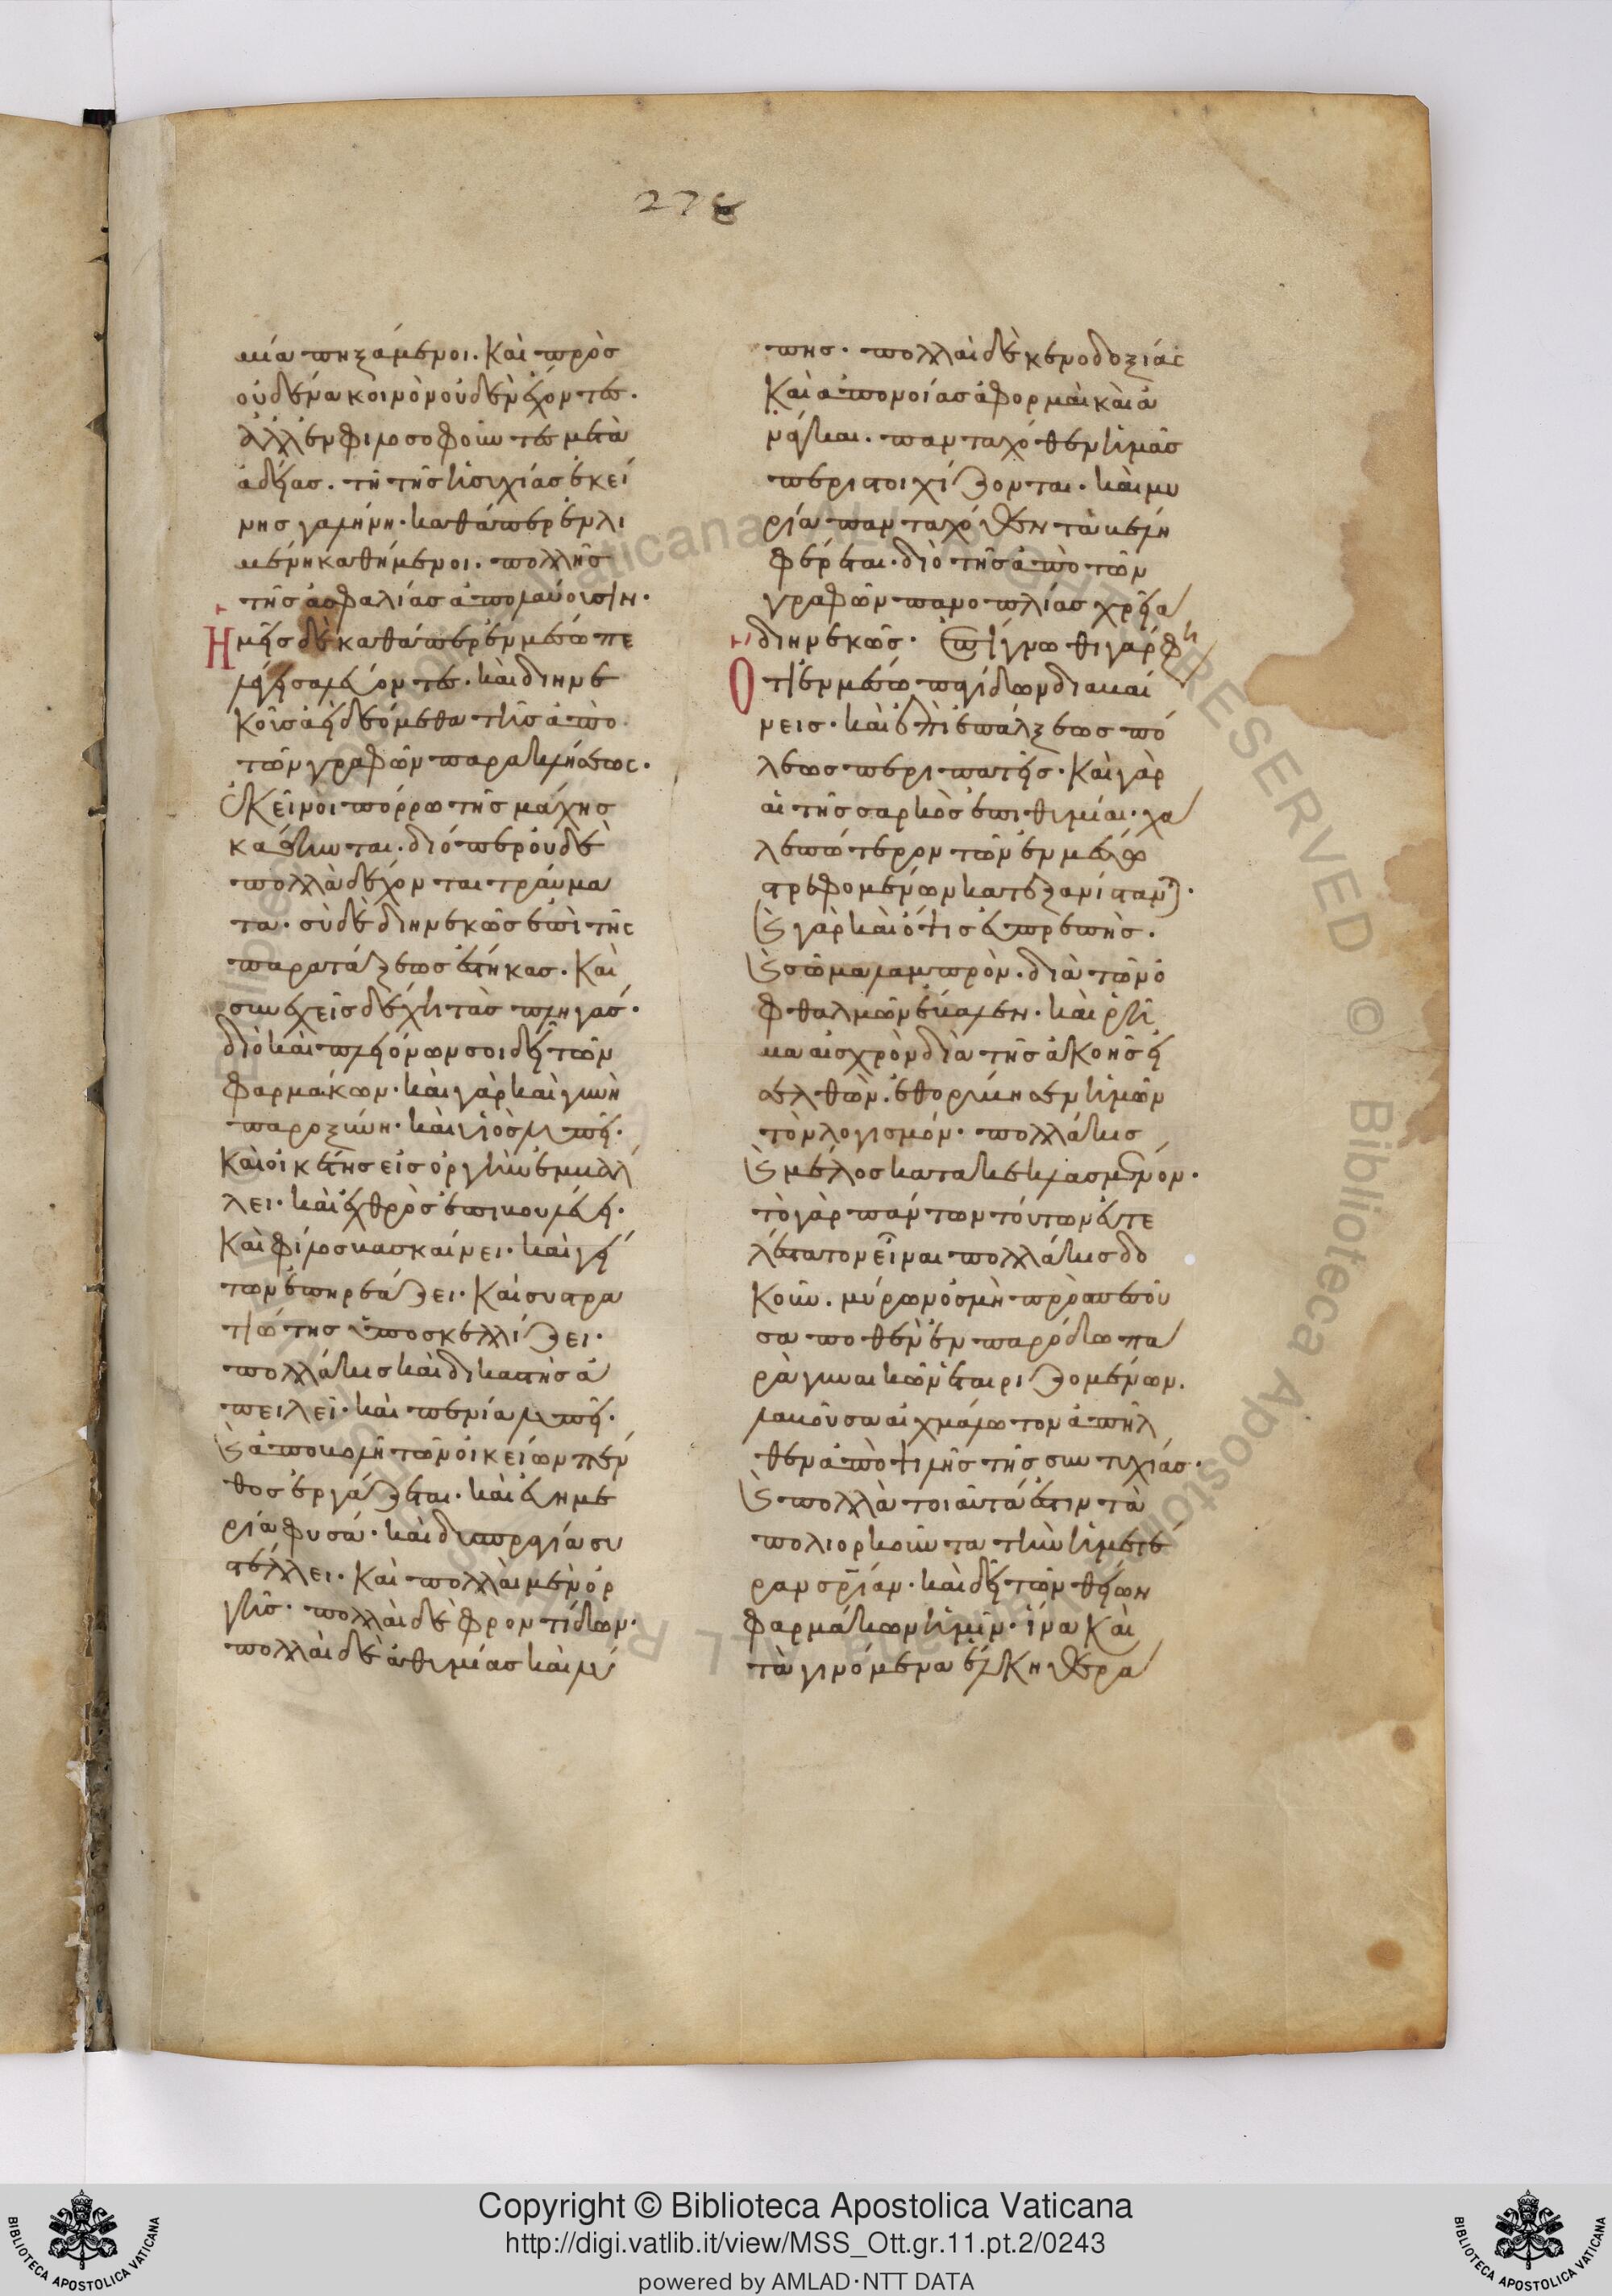 278
μία πηξάμενοι. καὶ πρὸς
οὐδένα κοινὸν οὐδὲν ἔχοντες.
ἀλλ' ἐμφιλοσοφοῦντες μετὰ
ἀδείας. τῆ τῆς ἡσυχίας ἐκεί
νης γαλήνη. καθάπερ ἐν λι
μένη καθήμενοι. πολλῆς
τῆς ἀσφαλίας ἀπολαύουσιν.
Ημεῖς δὲ καθάπερ ἐν μέσω πε
λάγει σαλεύοντες. καὶ διηνε
κῶς ἀεὶ δεόμεθα τῆς ἀπὸ
τῶν γραφῶν παρακλήσεως.
ἐκεῖνοι πόρρω τῆς μάχης
κάθηνται. διόπερ οὐδὲ
πολλὰ δέχονται τραύμα
τα. σὺ δὲ διηνεκῶς ἐπὶ τῆς
παρατάξεως ἕστηκας. καὶ
συνεχεῖς δέχη τὰς πληγάς.
διὸ καὶ πλειόνων σοι δεῖ τῶν
φαρμάκων. καὶ γὰρ καὶ γυνὴ
παροξύνη. καὶ υἱὸς λυπεῖ.
καὶ οἰκέτης εἰς ὀργὴν ἐμβάλ
λει. καὶ ἐχθρὸς ἐπιβουλεύει.
καὶ φίλος βασκαίνει. καὶ γεί
των ἐπηρεάζει. καὶ συστρα
τιώτης ὑποσκελίζει.
πολλάκις καὶ δικαστὴς ἀ
πειλεῖ. καὶ πενία λυπεῖ.
καὶ ἀποβολὴ τῶν οἰκείων πέν
θος ἐργάζεται. καὶ εὐημε
ρία φυσά. καὶ δυσπραγία συ
στέλλει. καὶ πολλαὶ μὲν ὀρ
γῆς. πολλαὶ δὲ φροντίδων.
πολλαὶ δὲ ἀθυμίας καὶ λύ
πης. πολλαὶ δὲ κενοδοξίας
καὶ ἀπονοίας ἀφορμαὶ καὶ ἀ
νάγκαι. πανταχόθεν ἡμᾶς
περιστοιχίζονται. καὶ μυ
ρία πανταχόθεν τὰ βέλη
φέρεται. διὸ τῆς ἀπὸ τῶν
γραφῶν πανοπλίας χρεία
διηνεκῶς. ἐπίγνωθι γάρ φη
Οτι ἐν μέσω παγίδων διαβαί
νεις. καὶ ἐπὶ ἐπάλξεως πό
λεως περιπατεῖς. καὶ γὰρ
αἱ τῆς σαρκὸς ἐπιθυμίαι. χα
λεπώτερον τῶν ἐν μέσω
στρεφομένων κατεξανίστανται.
καὶ γὰρ καὶ ὄψις εὐπρεπὴς.
καὶ σῶμα λαμπρὸν. διὰ τῶν ὀ
φθαλμῶν ἔβαλεν. καὶ ῥῆ
μα αἰσχρὸν διὰ τῆς ἀκοῆς εἰ
σελθὼν. ἐθορύβησεν ἡμῶν
τὸν λογισμόν. πολλάκις
καὶ μέλος κατακεκλασμένον.
τὸ γὰρ πάντων τούτων εὐτε
λέστατον εἶναι πολλάκις δο
κοῦν. μύρων ὀσμὴ προσπεσοῦ
σα ποθὲν ἐν παρόδω πα
ρὰ γυναικῶν ἑταιριζομένων.
λαβοῦσα αἰχμάλωτον ἀπῆλ
θεν ἀπὸ ψιλῆς τῆς συντυχίας.
καὶ πολλὰ τοιαῦτά ἐστιν τὰ
πολιορκοῦντα τὴν ἡμετέ
ραν σρίαν. καὶ δεῖ τῶν θείων
φαρμάκων ἡμῖν. ἵνα καὶ
τὰ γινόμενα ἕλκη θερα
Copyright © Biblioteca Apostolica Vaticana
http://digi.vatlib.it/view/MSS_Ott.gr.11.pt.2/0243
powered by AMLAD·NTT DATA
BIBLIOTECA APOSTOLICA VATICANA
BIBLIOTECA APOSTOLICA VATICANA